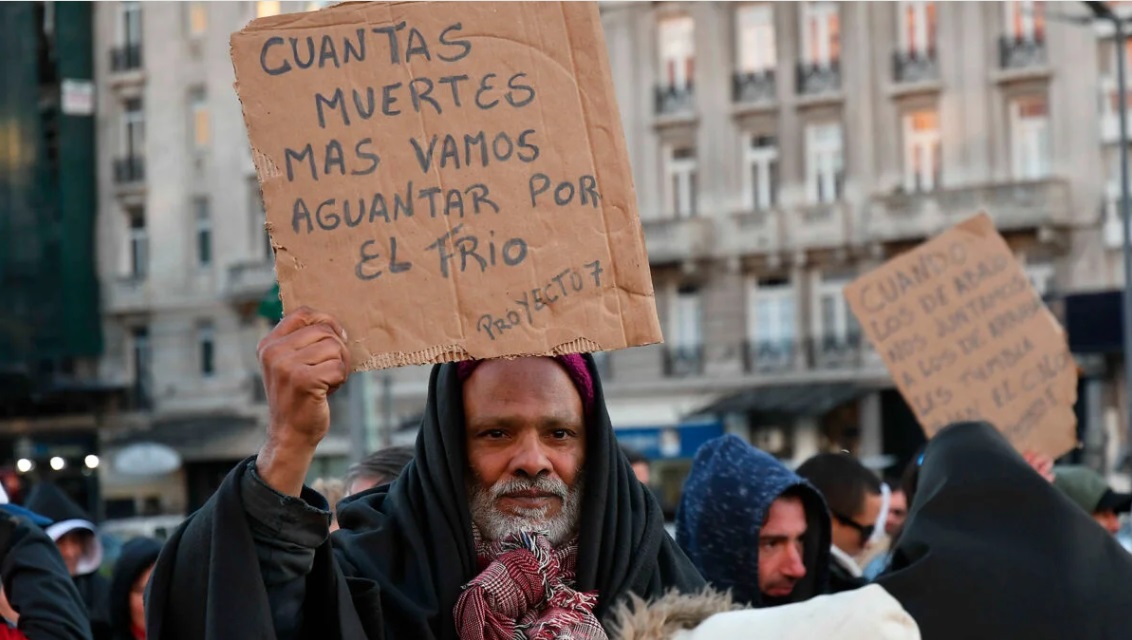 CUANTAS
MUERTES
MAS VAMOS
AGUANTAR POR
EL FRIO
PROYECTO 7
CUANDO
LOS DE ABAJO
NOS JUNTAMOS
A LOS DE ARRIBA
LES TIEMBLA